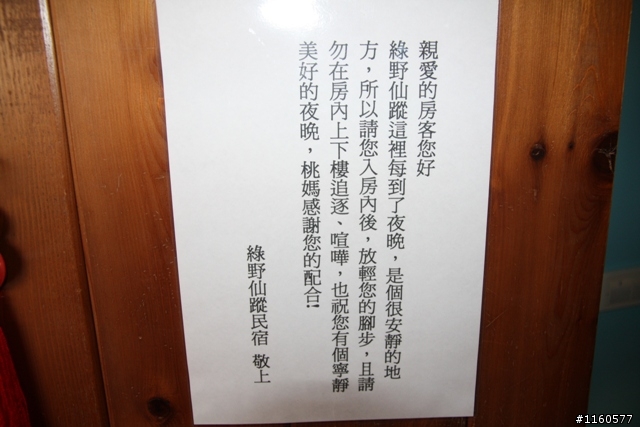 親愛的房客您好
綠野仙蹤這裡每到了夜晚，是個很安靜的地
方，所以請您入房內後，放輕您的腳步，且請
勿在房內上下樓追逐、喧嘩，也祝您有個寧靜
美好的夜晚，桃媽感謝您的配合!!
綠野仙蹤民宿 敬上
#1160577